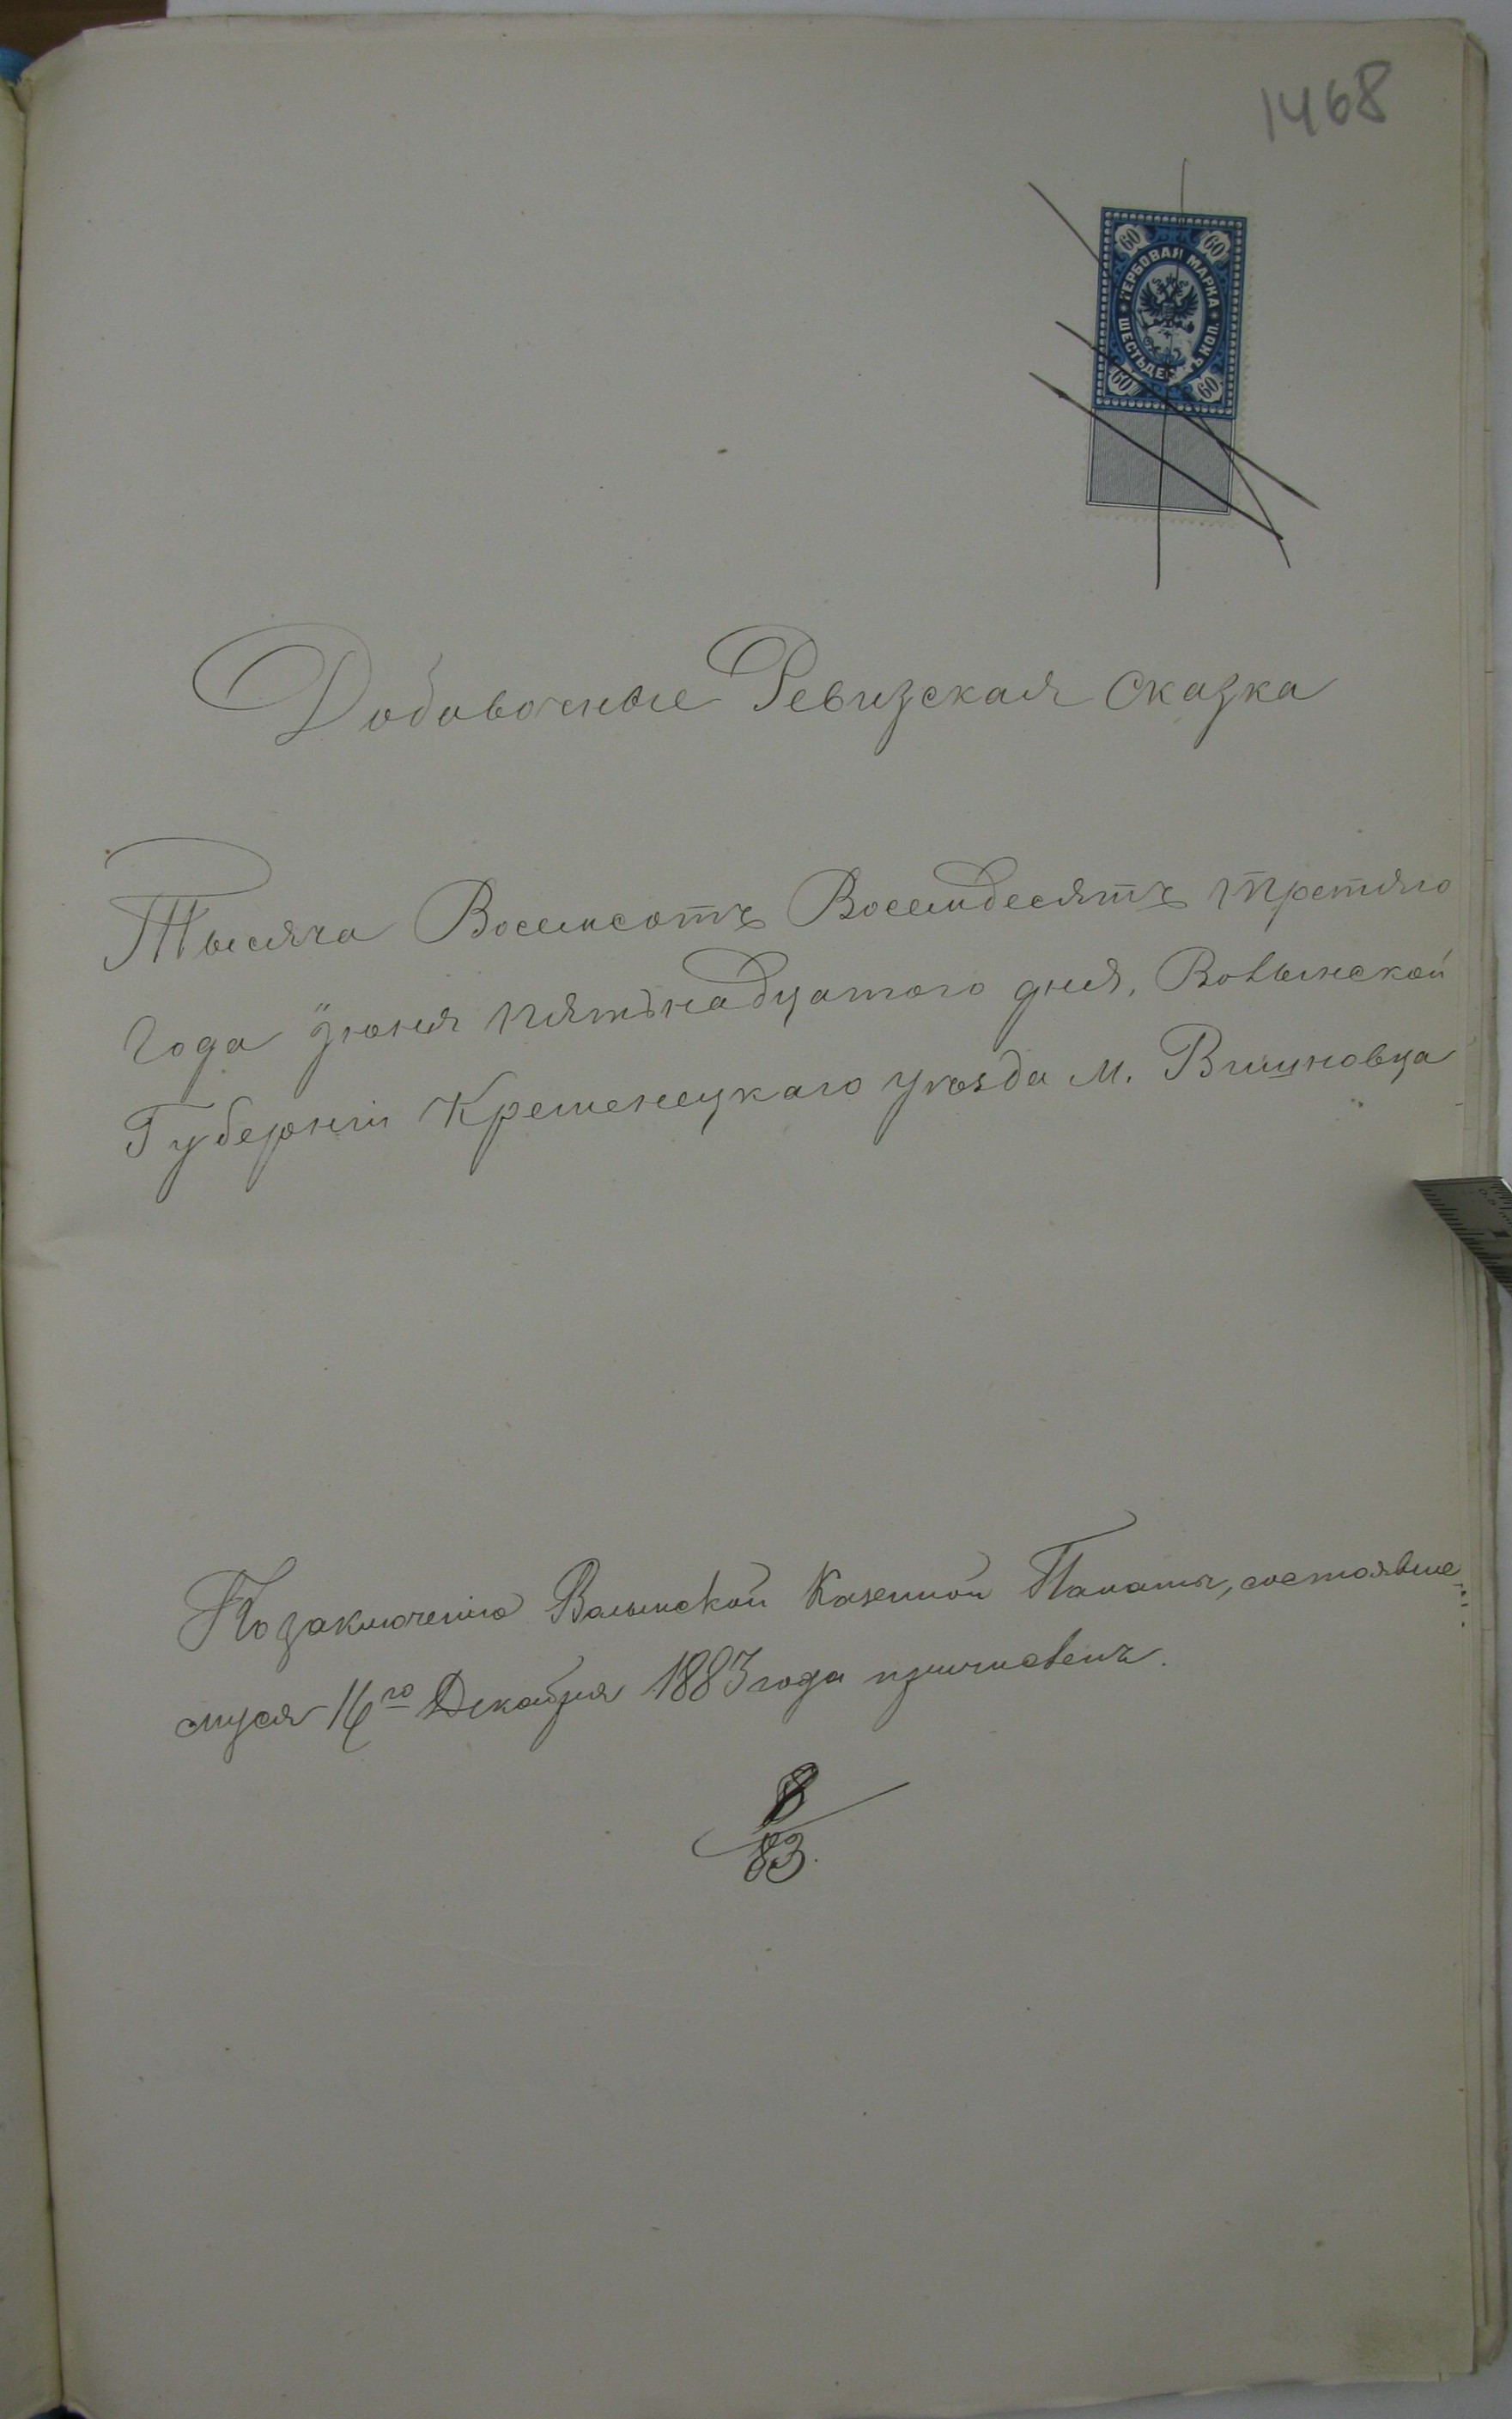 1468
60 60
ГЕРБОВАЯ МАРКА
ШЕСТЬДЕ Ъ КОП.
60 60
Добавочные Ревизская сказка
Тысяча Восемсотъ Восемдесятъ третяго
года Июня пятьнадцатого дня, Вовынской
Губернiи Кременецкаго уѣзда м. Вишновца
По заключенiю Волынской Казенной Палаты, состоявше
муся 16го Декабря 1883 года причисленъ.
8
83.